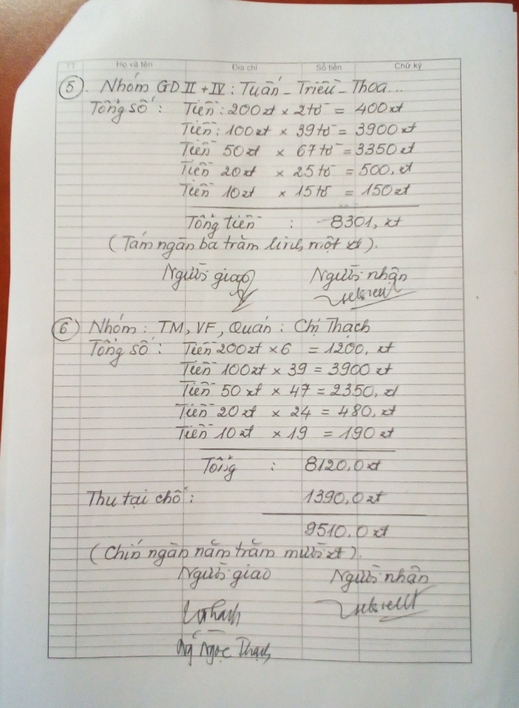 TT Họ và tên Địa chỉ Số tiền Chữ ký
5. Nhóm GD II + IV : Tuấn - Triều - Thoa...
Tổng số : Tiền : 200 zł × 2 tờ = 400 zł
Tiền : 100 zł × 39 tờ = 3900 zł
Tiền 50 zł × 67 tờ = 3350 zł
Tiền 20 zł × 25 tờ = 500, zł
Tiền 10 zł × 15 tờ = 150 zł
Tổng tiền : 8301, zł
( Tám ngàn ba trăm linh một zł ).
Người giao Người nhận
6 Nhóm : TM, VF, Quán : Chị Thạch
Tổng số : Tiền 200 zł × 6 = 1200, zł
Tiền 100 zł × 39 = 3900 zł
Tiền 50 zł × 47 = 2350, zł
Tiền 20 zł × 24 = 480, zł
Tiền 10 zł × 19 = 190 zł
Tổng : 8120,0 zł
Thu tại chỗ : 1390,0 zł
9510,0 zł
( Chín ngàn năm trăm mười zł ).
Người giao Người nhận
Ngọc Thạch